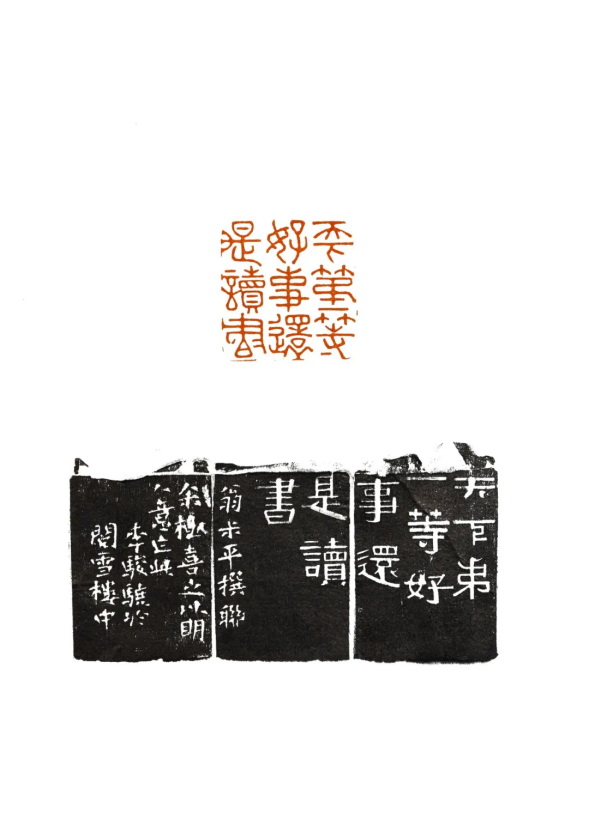 天下第一等
好事還
是讀書
天下弟
一等好
事還
是讀
書
翁尗平撰聯
余極喜之以明
意
李駿驥於
閱雪樓中